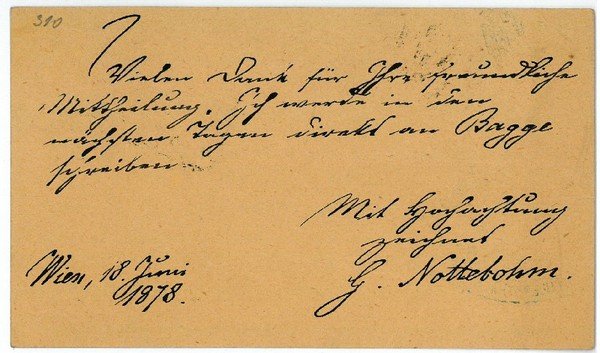 310
Vielen Dank für Ihre freundliche
Mittheilung. Ich werde in den
nächsten Tagen direkt an Bagge
schreiben
Mit Hochachtung
zeichnet
G. Nottebohm.
Wien, 18. Juni
1878.